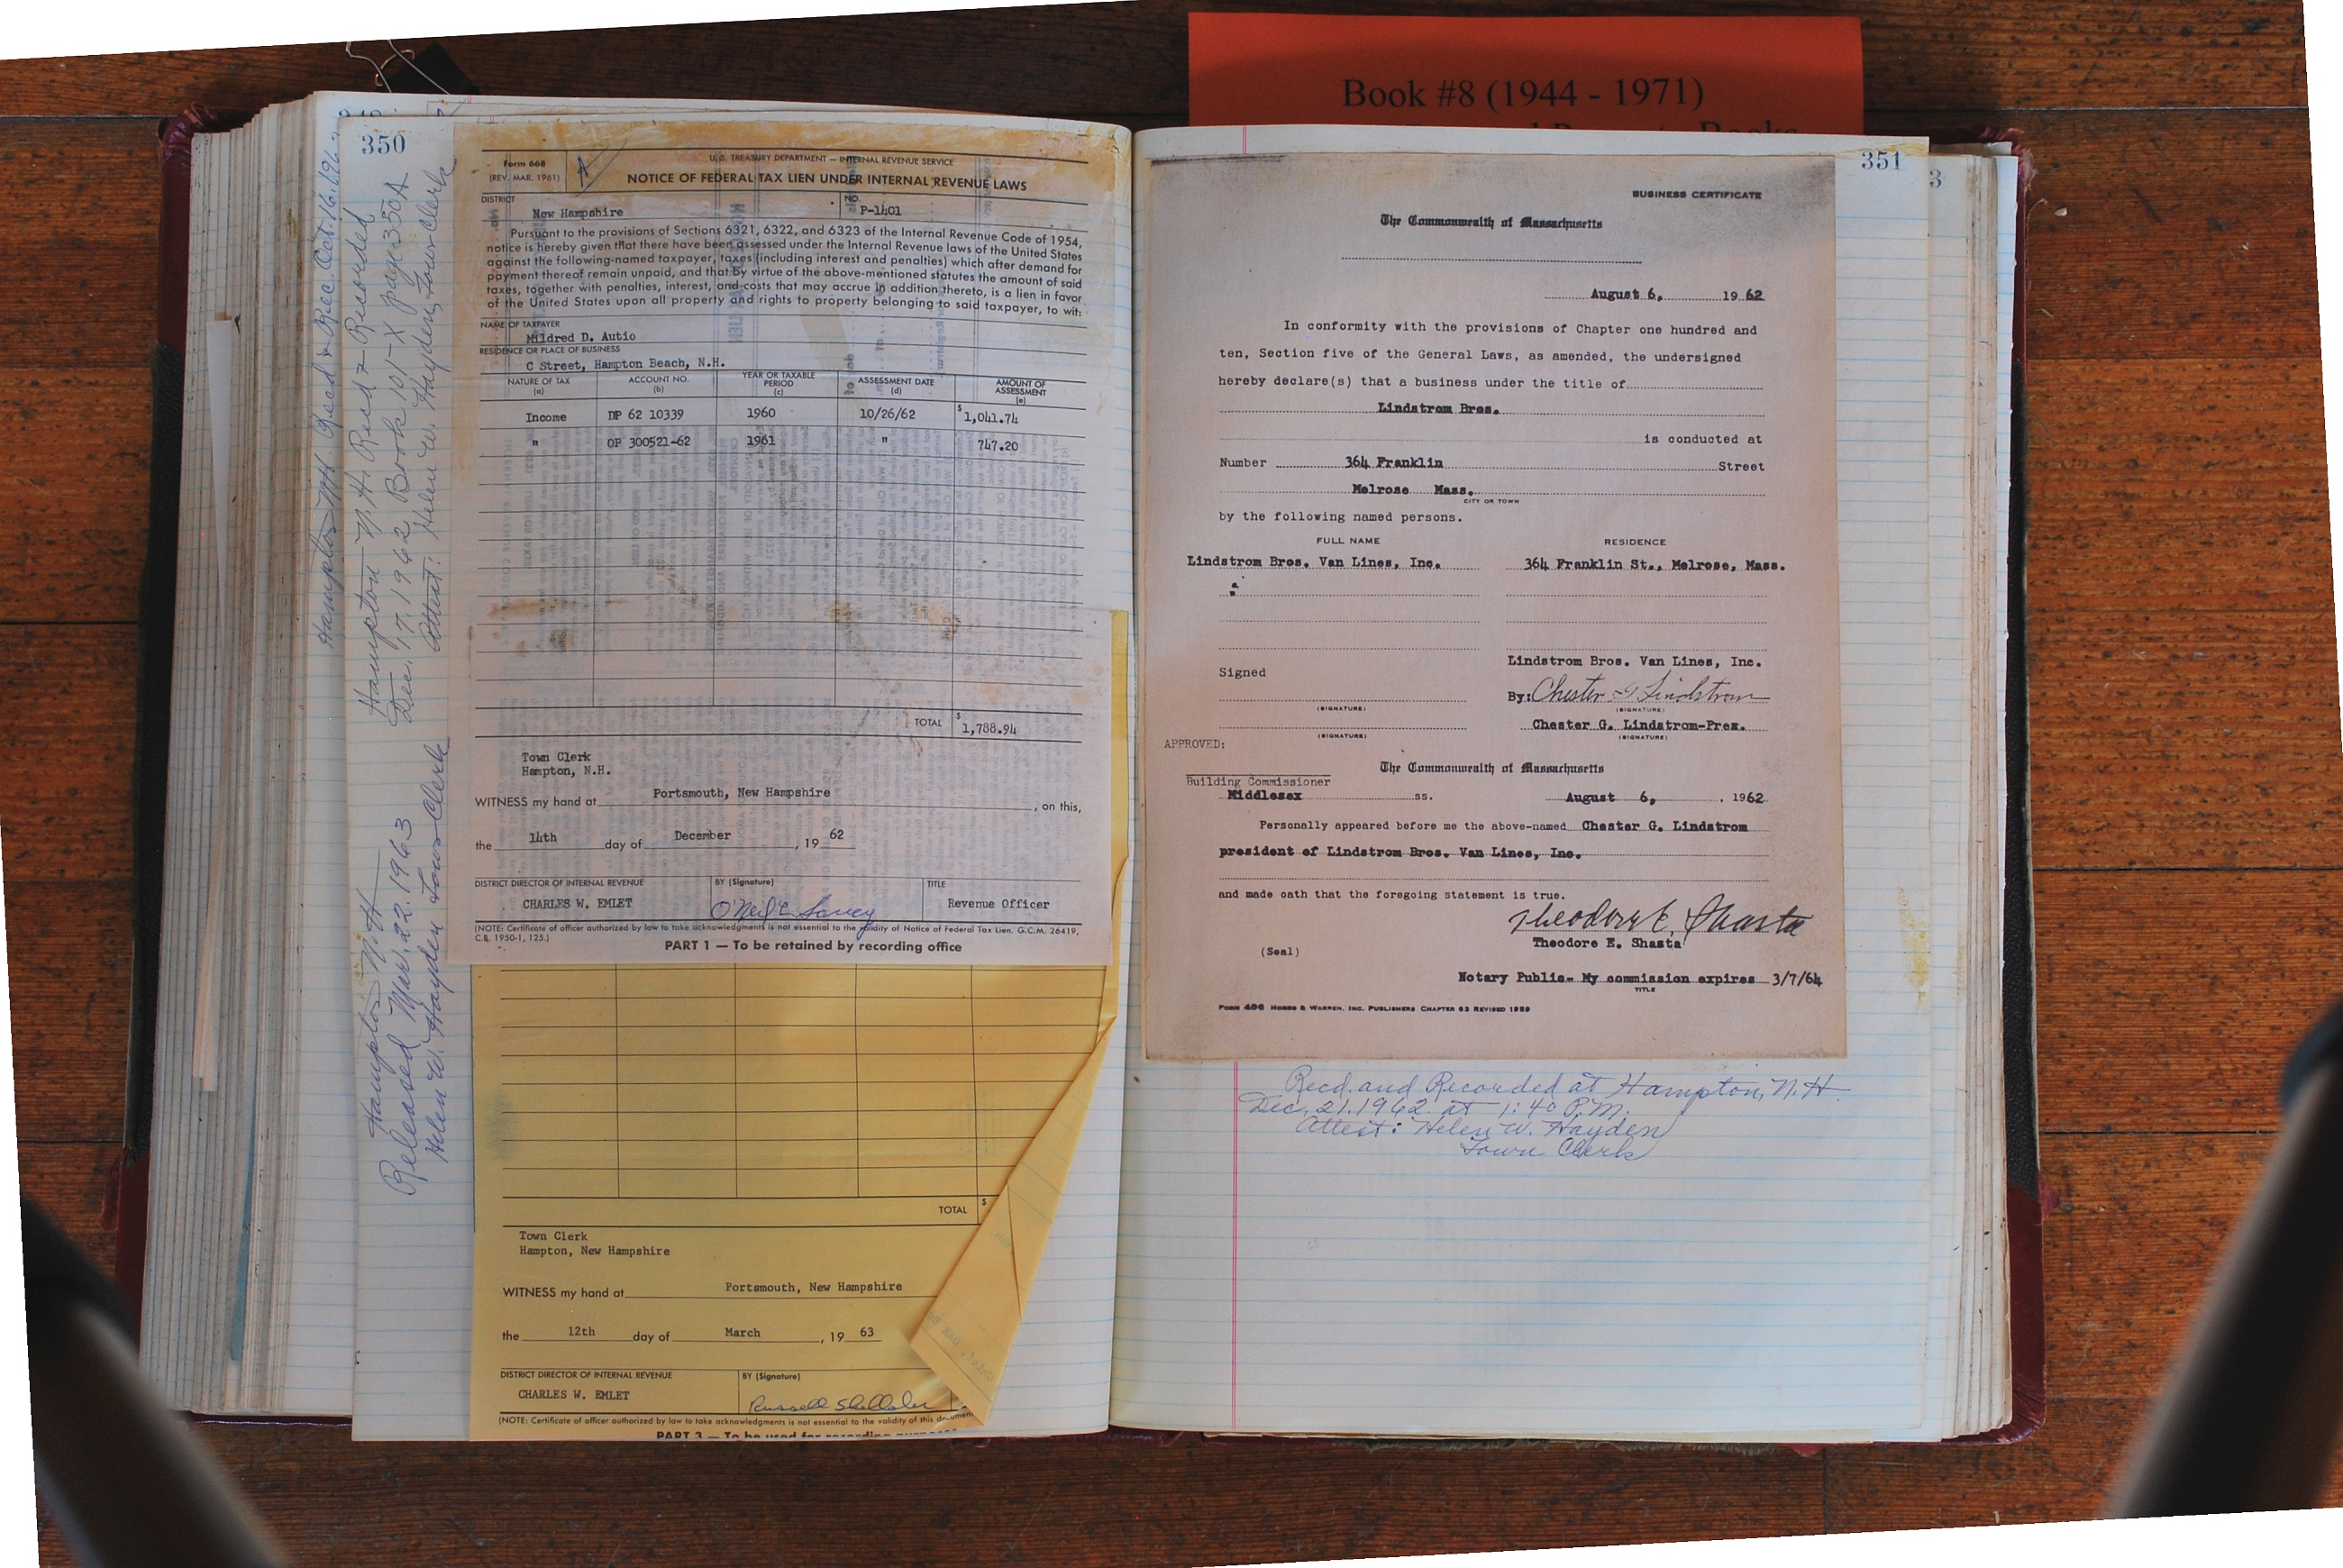 Book #8 (1944 - 1971)
350
Hampton N.H. Recd & Rec. Oct. 16, 196
Hampton N.H. Recd & Recorded
Dec. 17, 1962 Book 101-X page 350A
Attest: Helen W. Hayden, Town Clerk
Hampton N.H.
Released Mar. 22, 1963
Helen W. Hayden Town Clerk
Form 668
(REV. MAR. 1961)
A
U.S. TREASURY DEPARTMENT — INTERNAL REVENUE SERVICE
NOTICE OF FEDERAL TAX LIEN UNDER INTERNAL REVENUE LAWS
DISTRICT
New Hampshire
NO.
P-1401
Pursuant to the provisions of Sections 6321, 6322, and 6323 of the Internal Revenue Code of 1954,
notice is hereby given that there have been assessed under the Internal Revenue laws of the United States
against the following-named taxpayer, taxes (including interest and penalties) which after demand for
payment thereof remain unpaid, and that by virtue of the above-mentioned statutes the amount of said
taxes, together with penalties, interest, and costs that may accrue in addition thereto, is a lien in favor
of the United States upon all property and rights to property belonging to said taxpayer, to wit:
NAME OF TAXPAYER
Mildred D. Autio
RESIDENCE OR PLACE OF BUSINESS
C Street, Hampton Beach, N.H.
NATURE OF TAX (a) ACCOUNT NO. (b) YEAR OR TAXABLE PERIOD (c) ASSESSMENT DATE (d) AMOUNT OF ASSESSMENT (e)
Income DP 62 10339 1960 10/26/62 $ 1,041.74
" OP 300521-62 1961 " 747.20
TOTAL $ 1,788.94
Town Clerk
Hampton, N.H.
WITNESS my hand at Portsmouth, New Hampshire, on this,
the 14th day of December, 19 62
DISTRICT DIRECTOR OF INTERNAL REVENUE BY (Signature) TITLE
CHARLES W. EMLET Revenue Officer
(NOTE: Certificate of officer authorized by law to take acknowledgments is not essential to the validity of Notice of Federal Tax Lien. G.C.M. 26419,
C.B. 1950-1, 125.)
PART 1 — To be retained by recording office
TOTAL $
Town Clerk
Hampton, New Hampshire
WITNESS my hand at Portsmouth, New Hampshire
the 12th day of March, 19 63
DISTRICT DIRECTOR OF INTERNAL REVENUE BY (Signature)
CHARLES W. EMLET
(NOTE: Certificate of officer authorized by law to take acknowledgments is not essential to the validity of this document
PART 3 — To be used for recording purposes
351
3
BUSINESS CERTIFICATE
The Commonwealth of Massachusetts
August 6, 19 62
In conformity with the provisions of Chapter one hundred and
ten, Section five of the General Laws, as amended, the undersigned
hereby declare(s) that a business under the title of
Lindstrom Bros.
is conducted at
Number 364 Franklin Street
Melrose Mass.
CITY OR TOWN
by the following named persons.
FULL NAME RESIDENCE
Lindstrom Bros. Van Lines, Inc. 364 Franklin St., Melrose, Mass.
Lindstrom Bros. Van Lines, Inc.
Signed
By: Chester G Lindstrom
(SIGNATURE) (SIGNATURE)
Chester G. Lindstrom-Pres.
(SIGNATURE) (SIGNATURE)
APPROVED:
The Commonwealth of Massachusetts
Building Commissioner
Middlesex ss. August 6, , 1962
Personally appeared before me the above-named Chester G. Lindstrom
president of Lindstrom Bros. Van Lines, Inc.
and made oath that the foregoing statement is true.
Theodore E. Shasta
Theodore E. Shasta
(Seal)
Notary Public- My commission expires 3/7/64
TITLE
FORM 496 HOBBS & WARREN, INC. PUBLISHERS CHAPTER 63 REVISED 1959
Recd. and Recorded at Hampton, N.H.
Dec. 21, 1962 at 1:40 P.M.
Attest: Helen W. Hayden
Town Clerk